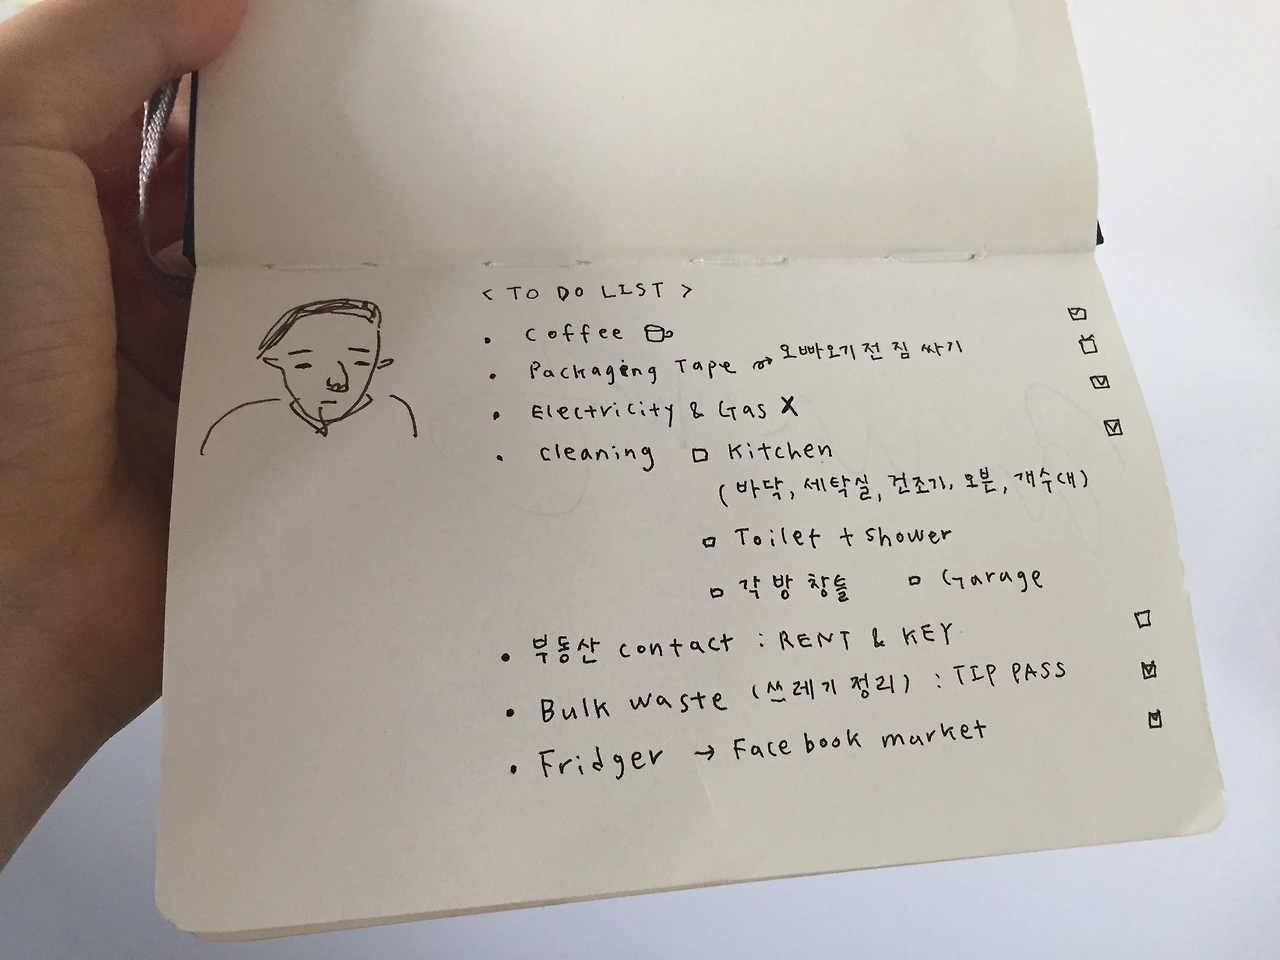 < TO DO LIST >
• coffee
• Packaging Tape → 오빠오기전 짐 싸기
• Electricity & Gas X
• cleaning □ Kitchen
(바닥, 세탁실, 건조기, 오븐, 개수대)
□ Toilet + shower
□ 각 방 창틀 □ Garage
• 부동산 contact : RENT & KEY
• Bulk waste (쓰레기 정리) : TIP PASS
• Fridger → Facebook market